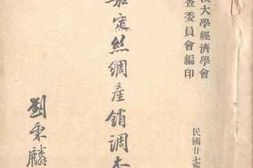 大學經濟學會
委員會編印
嘉定絲綢產銷調查
劉秉麟
民國廿七